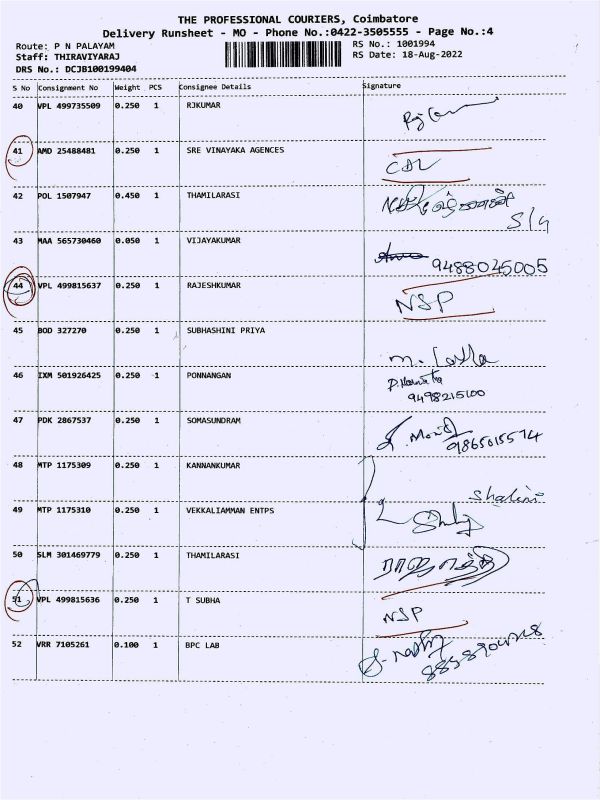 THE PROFESSIONAL COURIERS, Coimbatore
Delivery Runsheet - MO - Phone No.:0422-3505555 - Page No.:4
Route: P N PALAYAM
RS No.: 1001994
Staff: THIRAVIYARAJ
RS Date: 18-Aug-2022
DRS No.: DCJB100199404
S No Consignment No Weight PCS Consignee Details Signature
40 VPL 499735509 0.250 1 RJKUMAR
41 AMD 25488481 0.250 1 SRE VINAYAKA AGENCES
42 POL 1507947 0.450 1 THAMILARASI
S/4
43 MAA 565730460 0.050 1 VIJAYAKUMAR
9488045005
44 VPL 499815637 0.250 1 RAJESHKUMAR
NSP
45 BOD 327270 0.250 1 SUBHASHINI PRIYA
46 IXM 501926425 0.250 1 PONNANGAN
9498215100
47 PDK 2867537 0.250 1 SOMASUNDRAM
9865015574
48 MTP 1175309 0.250 1 KANNANKUMAR
Shalini
49 MTP 1175310 0.250 1 VEKKALIAMMAN ENTPS
50 SLM 301469779 0.250 1 THAMILARASI
51 VPL 499815636 0.250 1 T SUBHA
NSP
52 VRR 7105261 0.100 1 BPC LAB